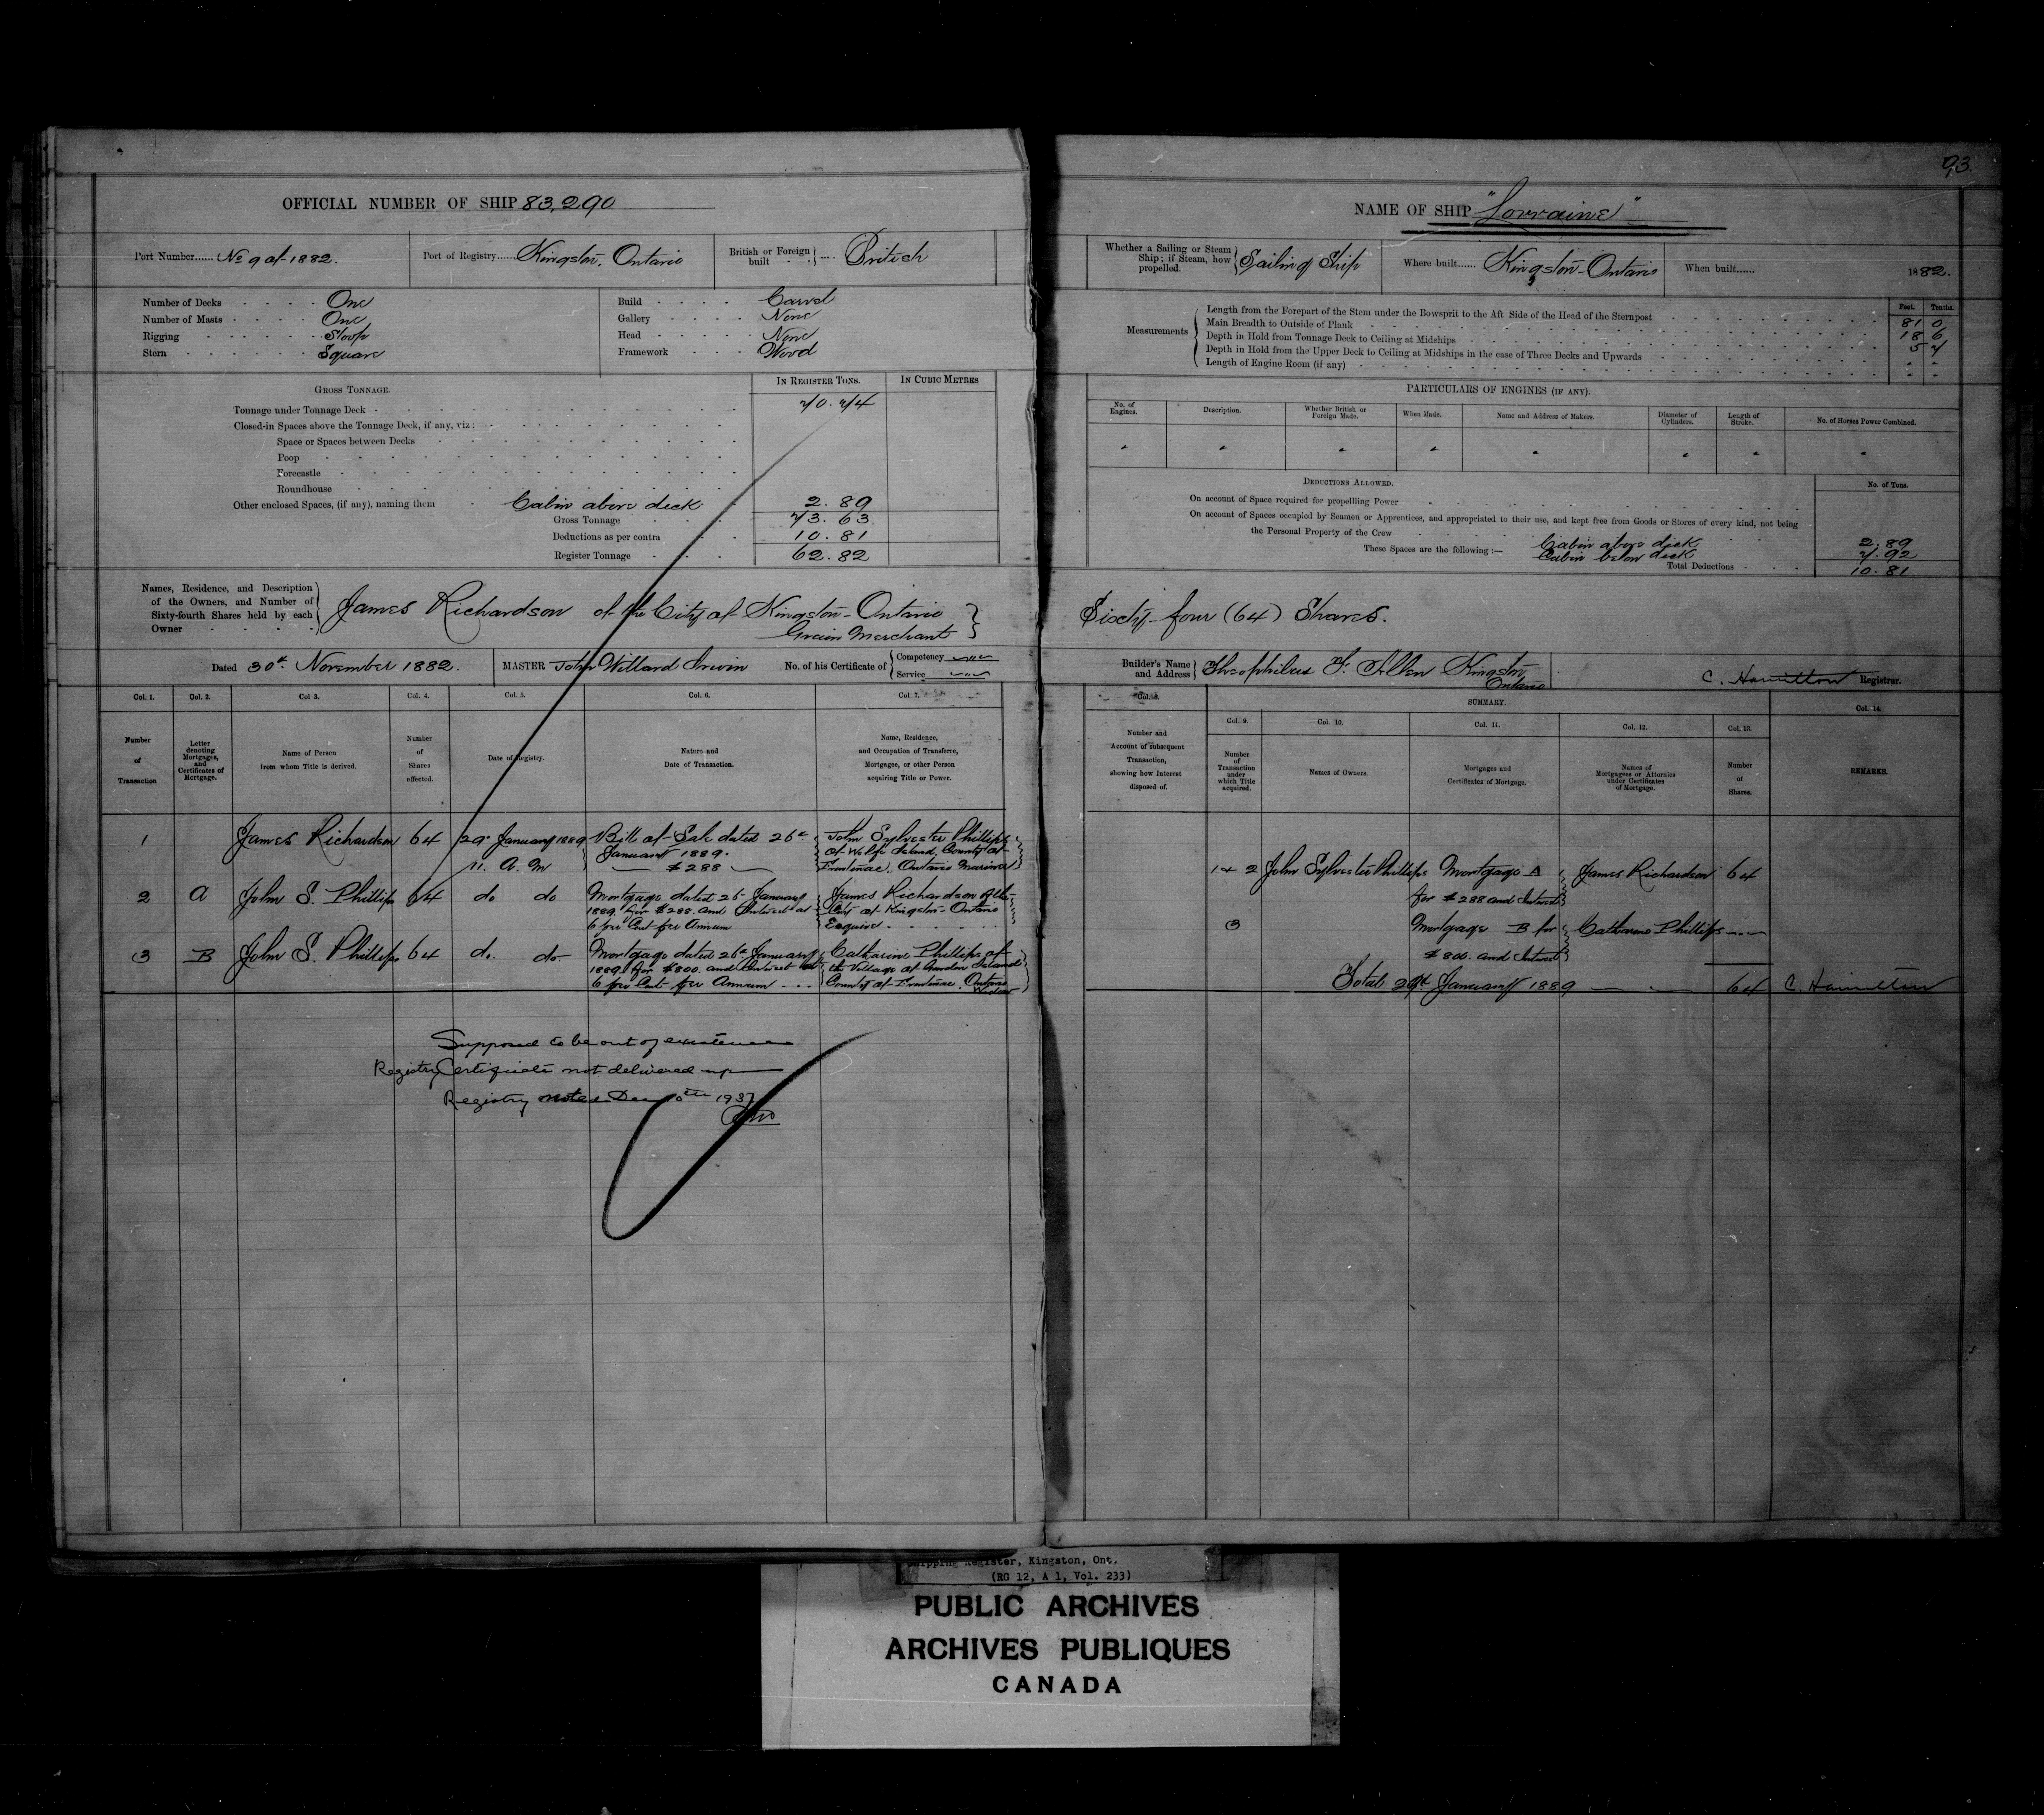 93.
OFFICIAL NUMBER OF SHIP 83,290
Port Number...... No 9 of 1882.
Port of Registry...... Kingston, Ontario
British or Foreign built .... British
Number of Decks One
Number of Masts One
Rigging Sloop
Stern Square
Build Carvel
Gallery None
Head None
Framework Wood
GROSS TONNAGE.
IN REGISTER TONS.
IN CUBIC METRES
Tonnage under Tonnage Deck 70.74
Closed-in Spaces above the Tonnage Deck, if any, viz:
Space or Spaces between Decks
Poop
Forecastle
Roundhouse
Other enclosed Spaces, (if any), naming them Cabin above deck 2.89
Gross Tonnage 73.63
Deductions as per contra 10.81
Register Tonnage 62.82
Names, Residence, and Description
of the Owners, and Number of
Sixty-fourth Shares held by each
Owner
James Richardson of the City of Kingston - Ontario
Grain Merchant
Dated 30th November 1882.
MASTER John Willard Irwin
No. of his Certificate of
Competency
Service
Col. 1.
Col. 2.
Col 3.
Col. 4.
Col. 5.
Col. 6.
Col. 7.
Number
of
Transaction
Letter
denoting
Mortgages,
and
Certificates of
Mortgage.
Name of Person
from whom Title is derived.
Number
of
Shares
affected.
Date of Registry.
Nature and
Date of Transaction.
Name, Residence,
and Occupation of Transferee,
Mortgagee, or other Person
acquiring Title or Power.
1 James Richardson 64 29th January 1889 Bill of Sale dated 26th John Sylvester Phillips
11. A. M January 1889. of Wolfe Island, County of
$288 Frontenac, Ontario Mariner
2 A John S. Phillips 64 do do Mortgage dated 26 January James Richardson of the
1889 for $288 and Interest at City of Kingston - Ontario
6 per Cent per Annum Esquire
3 B John S. Phillips 64 do. do Mortgage dated 26th January Catharine Phillips of
1889 for $800. and Interest at the Village of Garden Island
6 per Cent per Annum County of Frontenac, Ontario
Widow
Supposed to be out of existence
Registry Certificate not delivered up
Registry Dec 1937
NAME OF SHIP "Lorraine"
Whether a Sailing or Steam
Ship; if Steam, how
propelled.
Sailing Ship
Where built...... Kingston - Ontario
When built...... 1882.
Measurements
Feet. Tenths.
Length from the Forepart of the Stem under the Bowsprit to the Aft Side of the Head of the Sternpost 81 0
Main Breadth to Outside of Plank 18 6
Depth in Hold from Tonnage Deck to Ceiling at Midships 5 7
Depth in Hold from the Upper Deck to Ceiling at Midships in the case of Three Decks and Upwards
Length of Engine Room (if any)
PARTICULARS OF ENGINES (IF ANY).
No. of
Engines.
Description.
Whether British or
Foreign Made.
When Made.
Name and Address of Makers.
Diameter of
Cylinders.
Length of
Stroke.
No. of Horses Power Combined.
DEDUCTIONS ALLOWED.
No. of Tons.
On account of Space required for propellling Power
On account of Spaces occupied by Seamen or Apprentices, and appropriated to their use, and kept free from Goods or Stores of every kind, not being
the Personal Property of the Crew
These Spaces are the following :—
Cabin above deck 2.89
Cabin below deck 7.92
Total Deductions 10.81
Sixty-four (64) Shares.
Builder's Name
and Address
Theophilus F. Allen Kingston
Ontario
C. Hamilton Registrar.
Col. 8.
SUMMARY.
Col. 14.
Col. 9.
Col. 10.
Col. 11.
Col. 12.
Col. 13.
Number and
Account of subsequent
Transaction,
showing how Interest
disposed of.
Number
of
Transaction
under
which Title
acquired.
Names of Owners.
Mortgages and
Certificates of Mortgage.
Names of
Mortgagees or Attornies
under Certificates
of Mortgage.
Number
of
Shares.
REMARKS.
1 & 2 John Sylvester Phillips Mortgage A James Richardson 64
for $288 and Interest
3 Mortgage B for Catharine Phillips
$800. and Interest
Total 29th January 1889 64 C. Hamilton
Shipping Register, Kingston, Ont.
(RG 12, A 1, Vol. 233)
PUBLIC ARCHIVES
ARCHIVES PUBLIQUES
CANADA